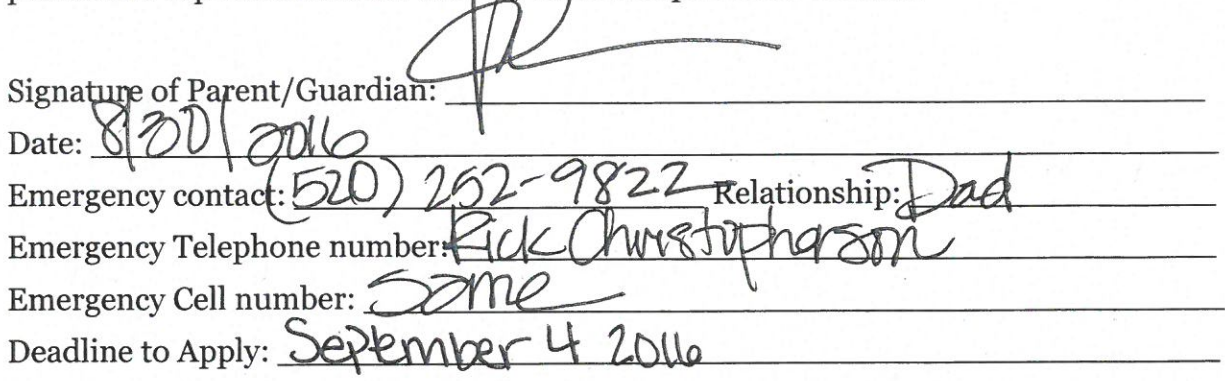 Signature of Parent/Guardian:
Date: 8/30/2016
Emergency contact: (520) 252-9822 Relationship: Dad
Emergency Telephone number: Rick Christopherson
Emergency Cell number: Same
Deadline to Apply: September 4 2016